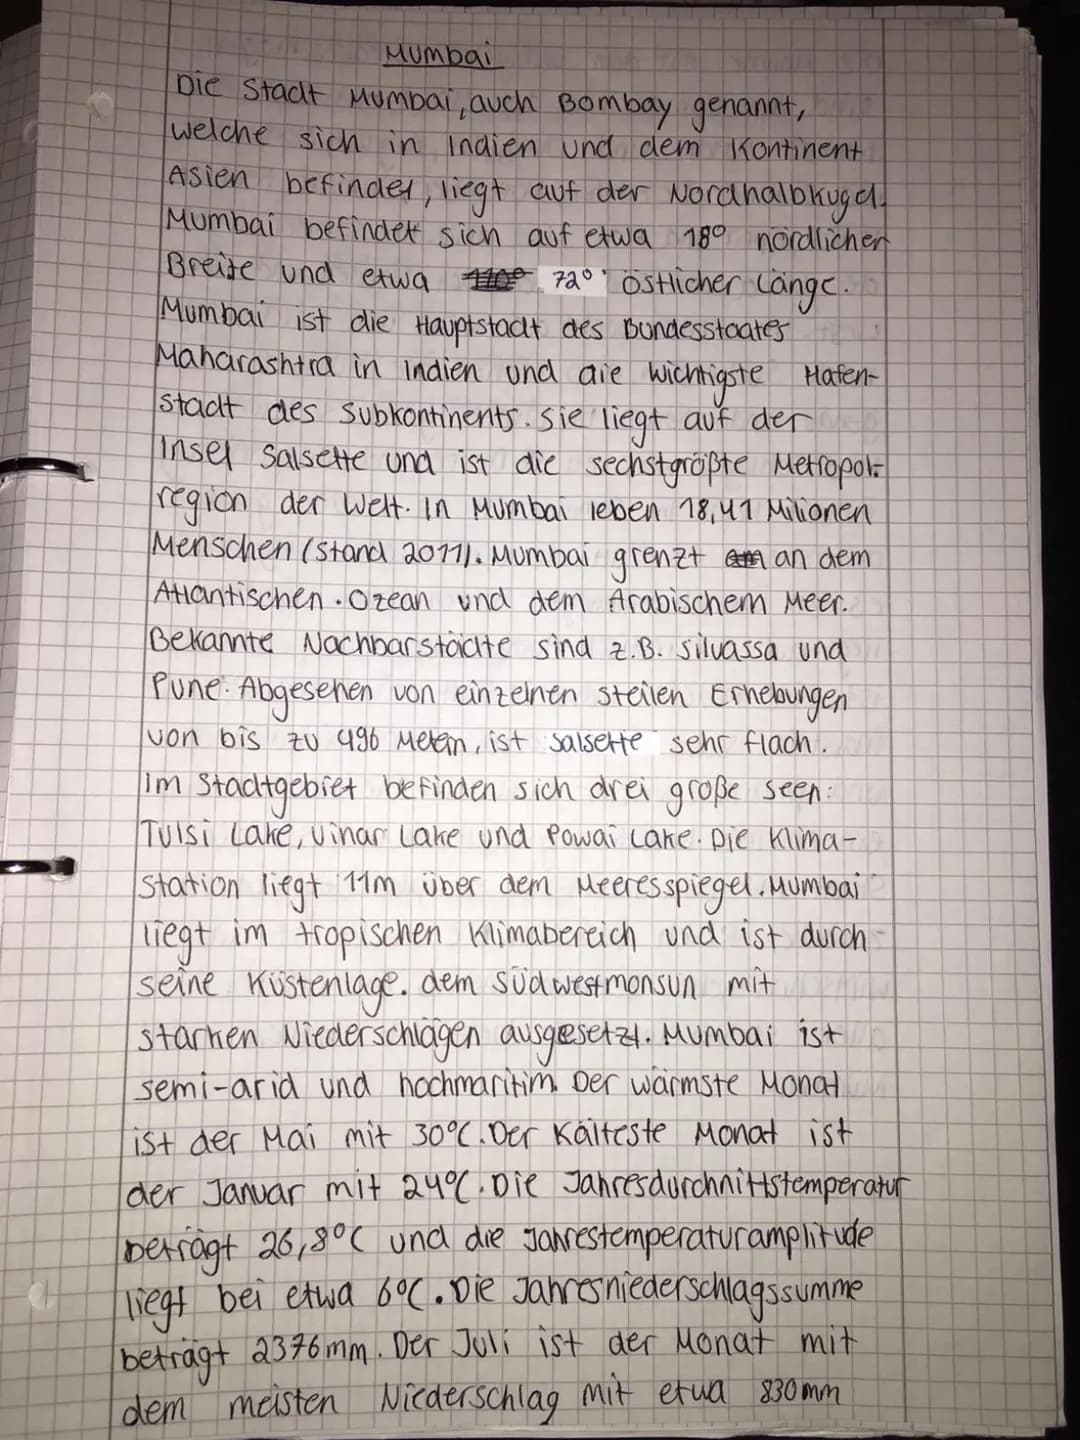 Mumbai
Die Stadt Mumbai, auch Bombay genannt,
welche sich in Indien und dem Kontinent
Asien befindet, liegt auf der Nordhalbkugel.
Mumbai befindet sich auf etwa 18° nördlicher
Breite und etwa 72° östlicher Länge.
Mumbai ist die Hauptstadt des Bundesstaates
Maharashtra in Indien und die wichtigste Hafen-
stadt des Subkontinents. Sie liegt auf der
Insel Salsette und ist die sechstgrößte Metropol-
region der Welt. In Mumbai leben 18,41 Milionen
Menschen (Stand 2011). Mumbai grenzt an dem
Atlantischen Ozean und dem Arabischem Meer.
Bekannte Nachbarstädte sind z.B. Silvassa und
Pune. Abgesehen von einzelnen steilen Erhebungen
von bis zu 496 Metern, ist Salsette sehr flach.
Im Stadtgebiet befinden sich drei große Seen:
Tulsi Lake, Vihar Lake und Powai Lake. Die Klima-
station liegt 11m über dem Meeresspiegel. Mumbai
liegt im tropischen Klimabereich und ist durch
seine Küstenlage. dem Südwestmonsun mit
starken Niederschlägen ausgesetzt. Mumbai ist
semi-arid und hochmaritim. Der wärmste Monat
ist der Mai mit 30°C. Der Kälteste Monat ist
der Januar mit 24°C. Die Jahresdurchnittstemperatur
beträgt 26,8°C und die Jahrestemperaturamplitude
liegt bei etwa 6°C. Die Jahresniederschlagssumme
beträgt 2376mm. Der Juli ist der Monat mit
dem meisten Niederschlag mit etwa 830mm